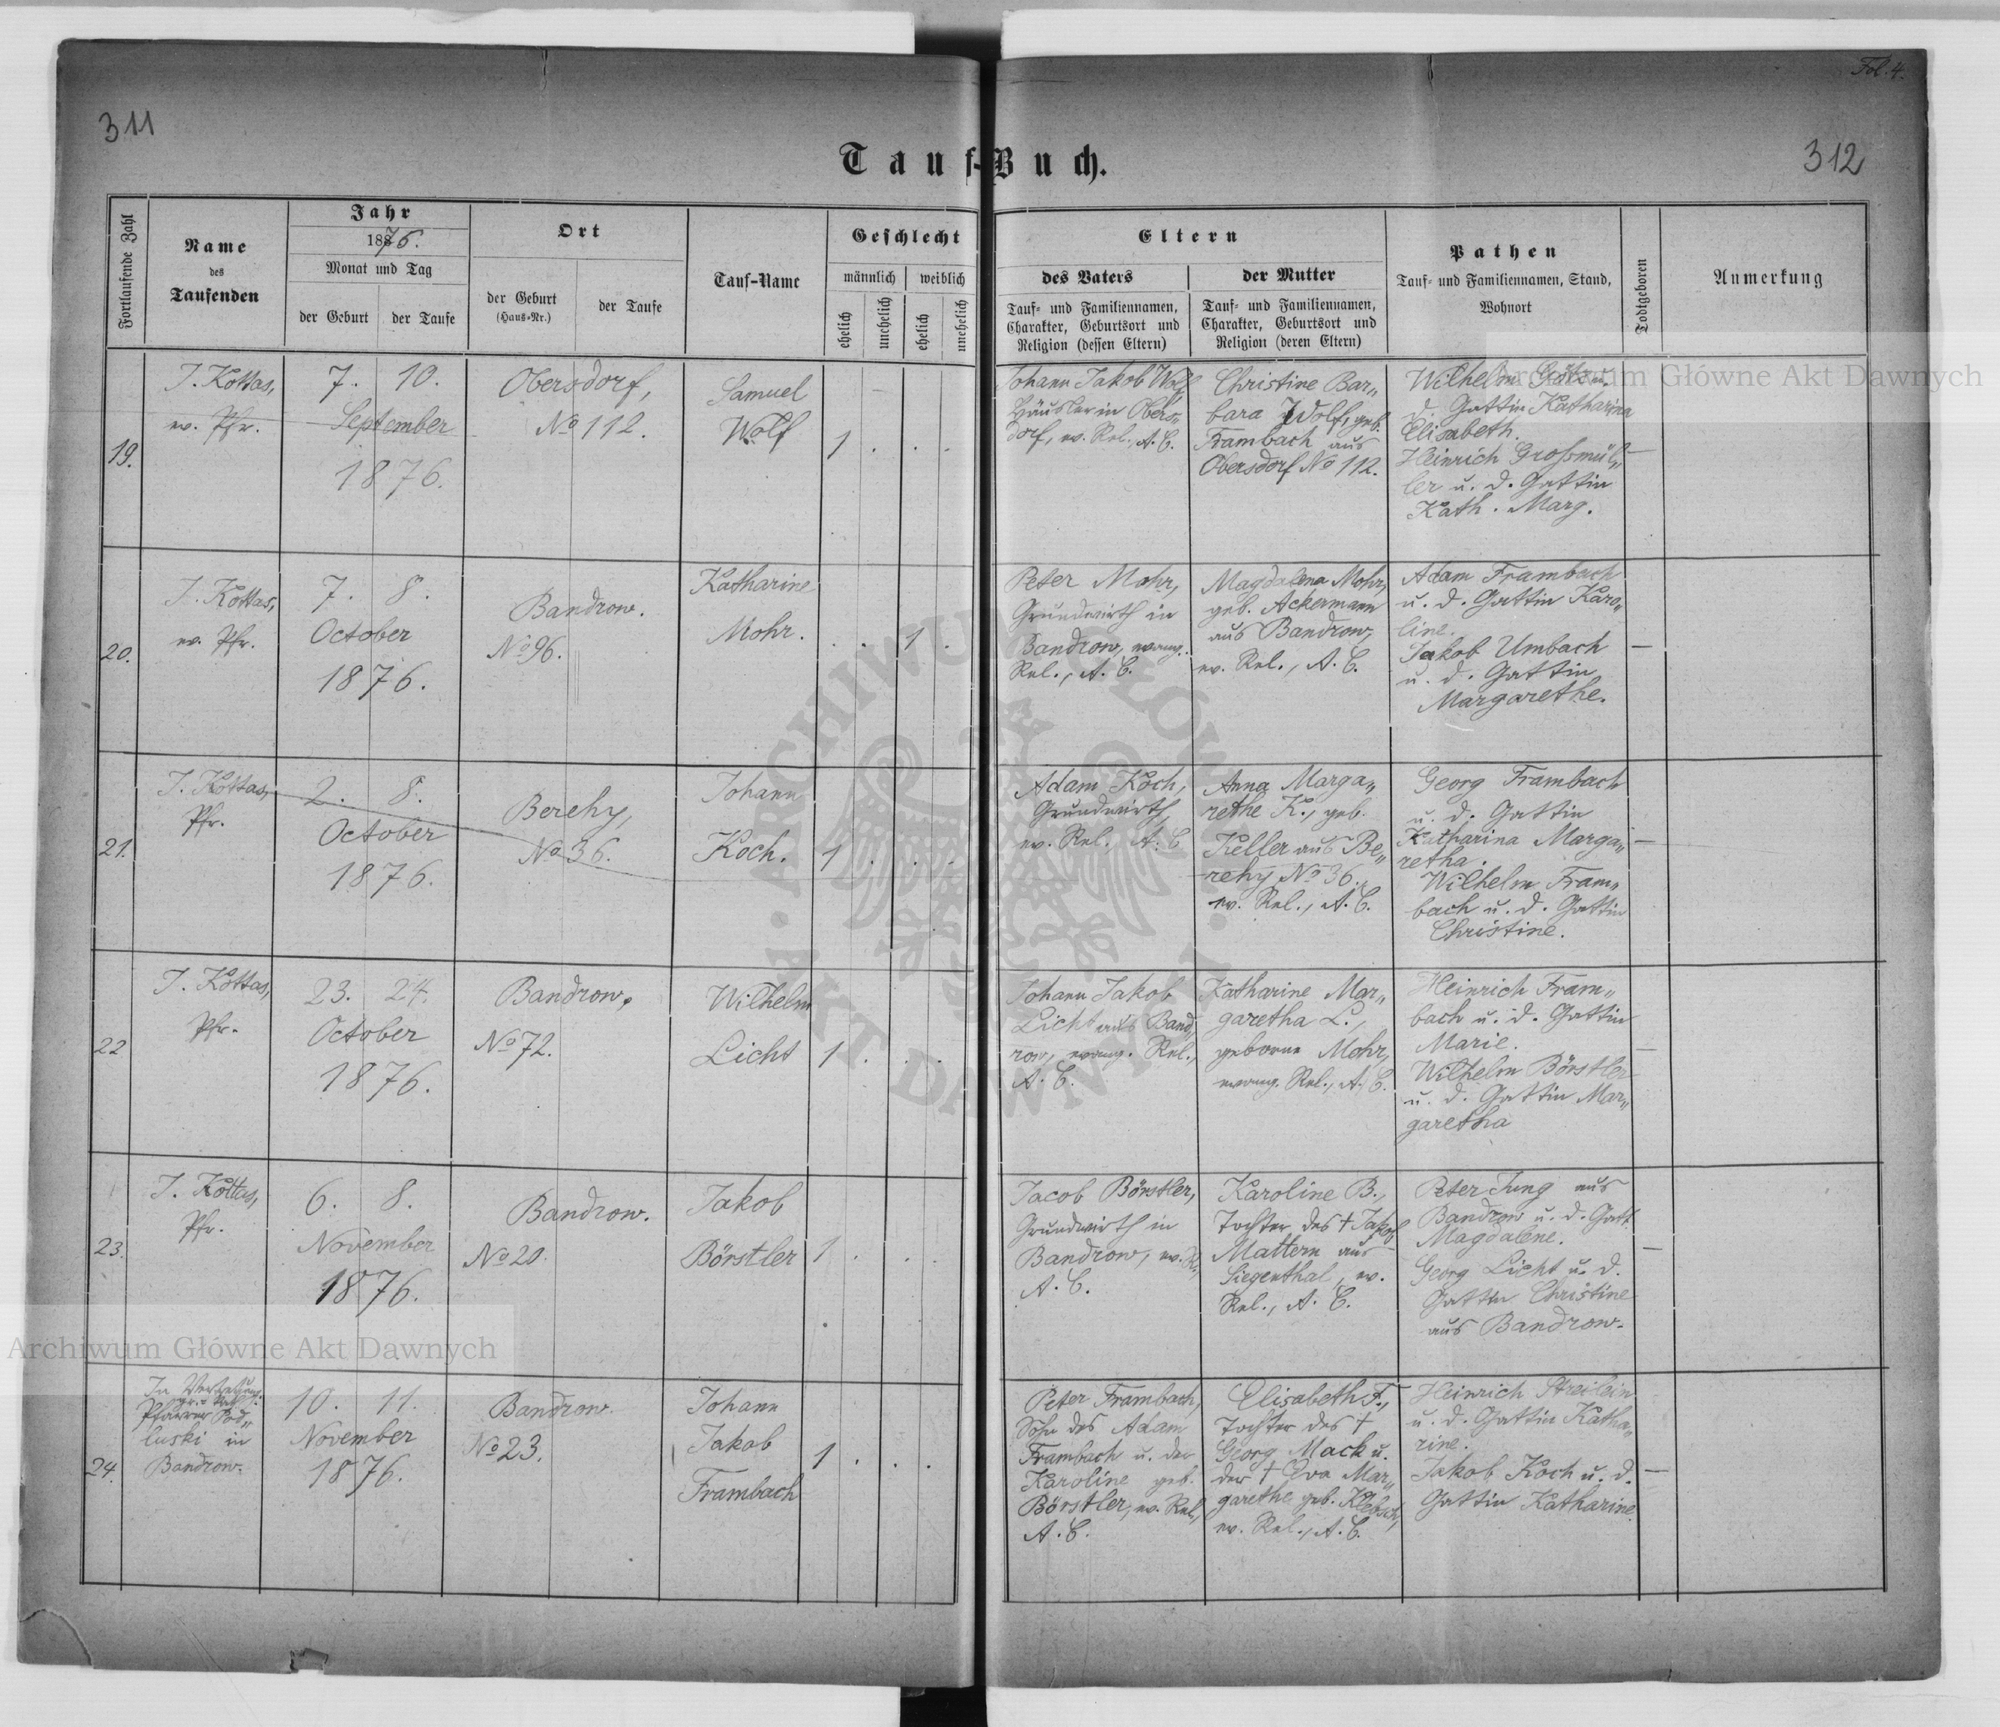 Fol. 4.
311
312
Tauf-Buch.
Fortlaufende Zahl
Name
des
Taufenden
Jahr
1876.
Monat und Tag
der Geburt
der Taufe
Ort
der Geburt
(Haus-Nr.)
der Taufe
Tauf-Name
Geschlecht
männlich
weiblich
ehelich
unehelich
ehelich
unehelich
Eltern
des Vaters
Tauf- und Familiennamen,
Charakter, Geburtsort und
Religion (dessen Eltern)
der Mutter
Tauf- und Familiennamen,
Charakter, Geburtsort und
Religion (deren Eltern)
Pathen
Tauf- und Familiennamen, Stand,
Wohnort
Todtgeboren
Anmerkung
19.
J. Kottas,
ev. Pfr.
7. 10.
September
1876.
Obersdorf,
No 112.
Samuel
Wolf
1 . . .
Johann Jakob Wolf,
Häusler in Obers„
dorf, ev. Rel., A. C.
Christine Bar„
bara Wolf, geb.
Frambach aus
Obersdorf No 112.
Wilhelm Götz u.
d. Gattin Katharina
Elisabeth.
Heinrich Großmül„
ler u. d. Gattin
Kath. Marg.
—
20.
J. Kottas,
ev. Pfr.
7. 8.
October
1876.
Bandrow.
No 96.
Katharine
Mohr.
. . 1 .
Peter Mohr,
Grundwirth in
Bandrow, evang.
Rel., A. C.
Magdalena Mohr,
geb. Ackermann
aus Bandrow,
ev. Rel., A. C.
Adam Frambach
u. d. Gattin Karo„
line.
Jakob Umbach
u. d. Gattin
Margarethe.
—
21.
J. Kottas,
Pfr.
2. 8.
October
1876.
Berehy,
No 36.
Johann
Koch.
1 . . .
Adam Koch,
Grundwirth,
ev. Rel. A. C
Anna Marga„
rethe K., geb.
Keller aus Be„
rehy No 36.,
ev. Rel., A. C.
Georg Frambach
u. d. Gattin
Katharina Marga„
retha.
Wilhelm Fram„
bach u. d. Gattin
Christine.
—
22
J. Kottas,
Pfr.
23. 24.
October
1876.
Bandrow,
No 72.
Wilhelm
Licht
1 . . .
Johann Jakob
Licht aus Band„
row, evang. Rel.,
A. C.
Katharine Mar„
garetha L.,
geborne Mohr,
evang. Rel., A. C.
Heinrich Fram„
bach u. d. Gattin
Marie.
Wilhelm Börstler
u. d. Gattin Mar„
garetha
—
23.
J. Kottas,
Pfr.
6. 8.
November
1876.
Bandrow.
No 20.
Jakob
Börstler
1 . . .
Jacob Börstler,
Grundwirth in
Bandrow, ev. R.,
A. C.
Karoline B.,
Tochter des † Jakob
Mattern aus
Siegenthal, ev.
Rel., A. C.
Peter Jung aus
Bandrow u. d. Gatt.
Magdalene.
Georg Licht u. d.
Gattin Christine
aus Bandrow.
—
24.
In Vertretung
Pfarrer Pod„
luski in
Bandrow.
10. 11.
November
1876.
Bandrow.
No 23.
Johann
Jakob
Frambach
1 . . .
Peter Frambach,
Sohn des Adam
Frambach u. der
Karoline geb.
Börstler, ev. Rel.,
A. C.
Elisabeth F.,
Tochter des †
Georg Mack u.
der † Eva Mar„
garethe geb.
ev. Rel., A. C.
Heinrich Streilein
u. d. Gattin Katha„
rine.
Jakob Koch u. d.
Gattin Katharine.
—
Archiwum Główne Akt Dawnych
Archiwum Główne Akt Dawnych
ARCHIWUM GŁÓWNE AKT DAWNYCH